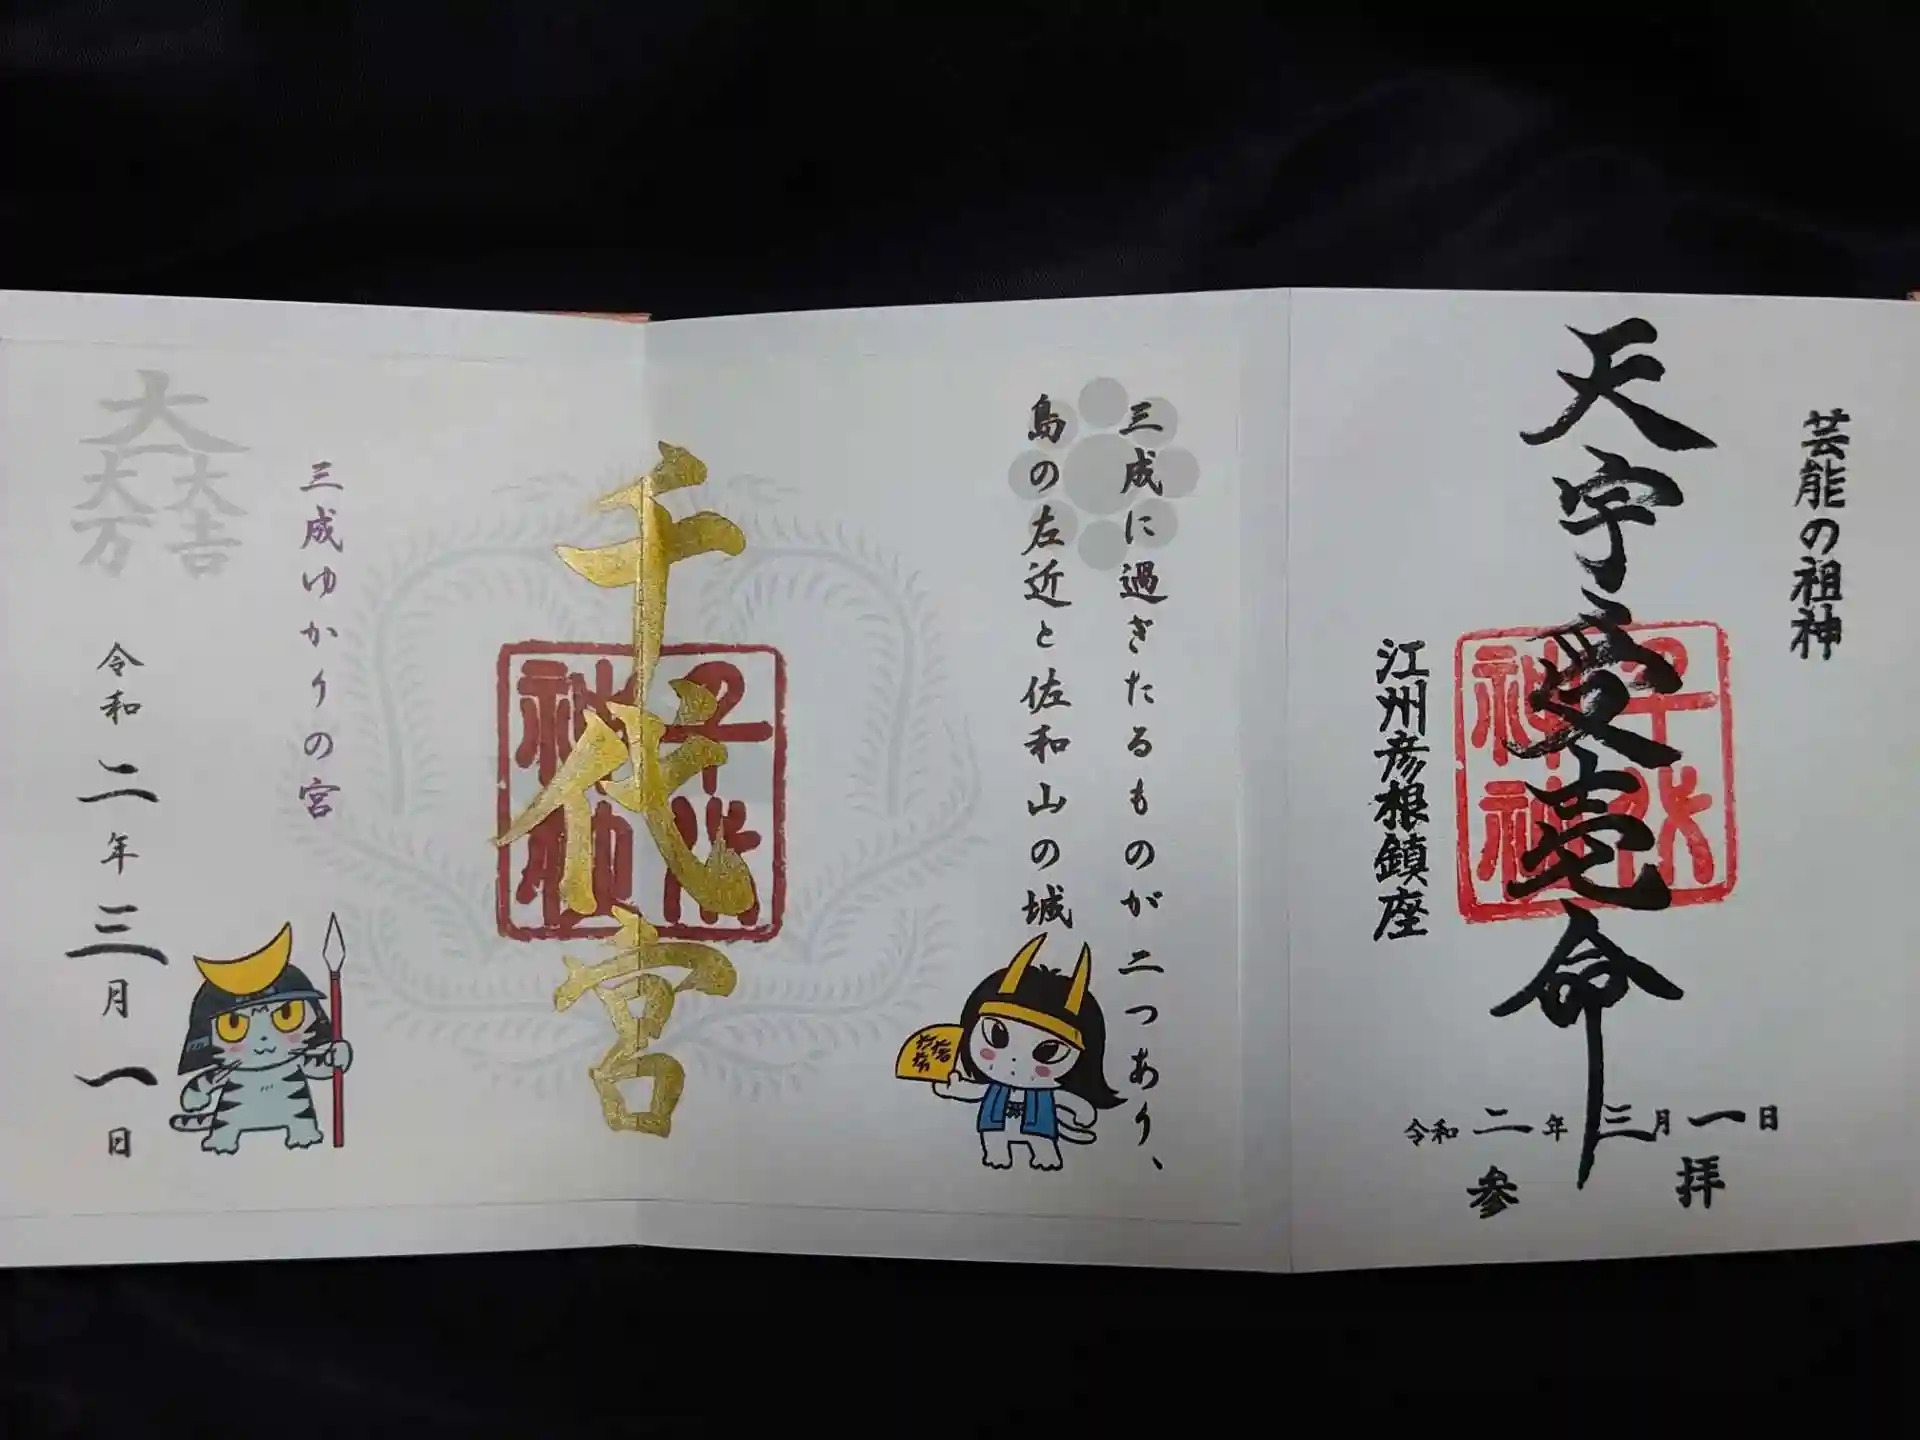 芸能の祖神
天宇受売命
千代
神社
江州彦根鎮座
令和二年三月一日
参拝
三成に過ぎたるものが二つあり、
島の左近と佐和山の城
千代宮
千代
神社
三成ゆかりの宮
大一
大吉
大万
令和二年三月一日